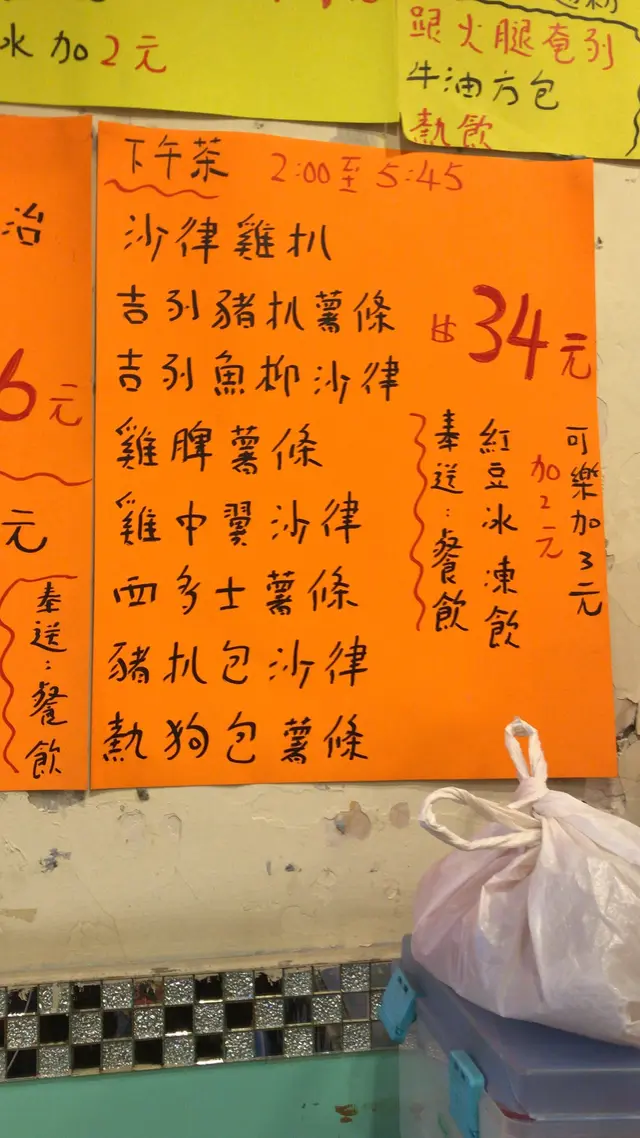 冰加2元
跟火腿奄列
牛油方包
熱飲
治
6元
元
奉送：餐飲
下午茶 2:00至5:45
沙律雞扒
吉列豬扒薯條
吉列魚柳沙律
雞脾薯條
雞中翼沙律
西多士薯條
豬扒包沙律
熱狗包薯條
34元
奉送：餐飲
紅豆冰凍飲
加2元
可樂加3元